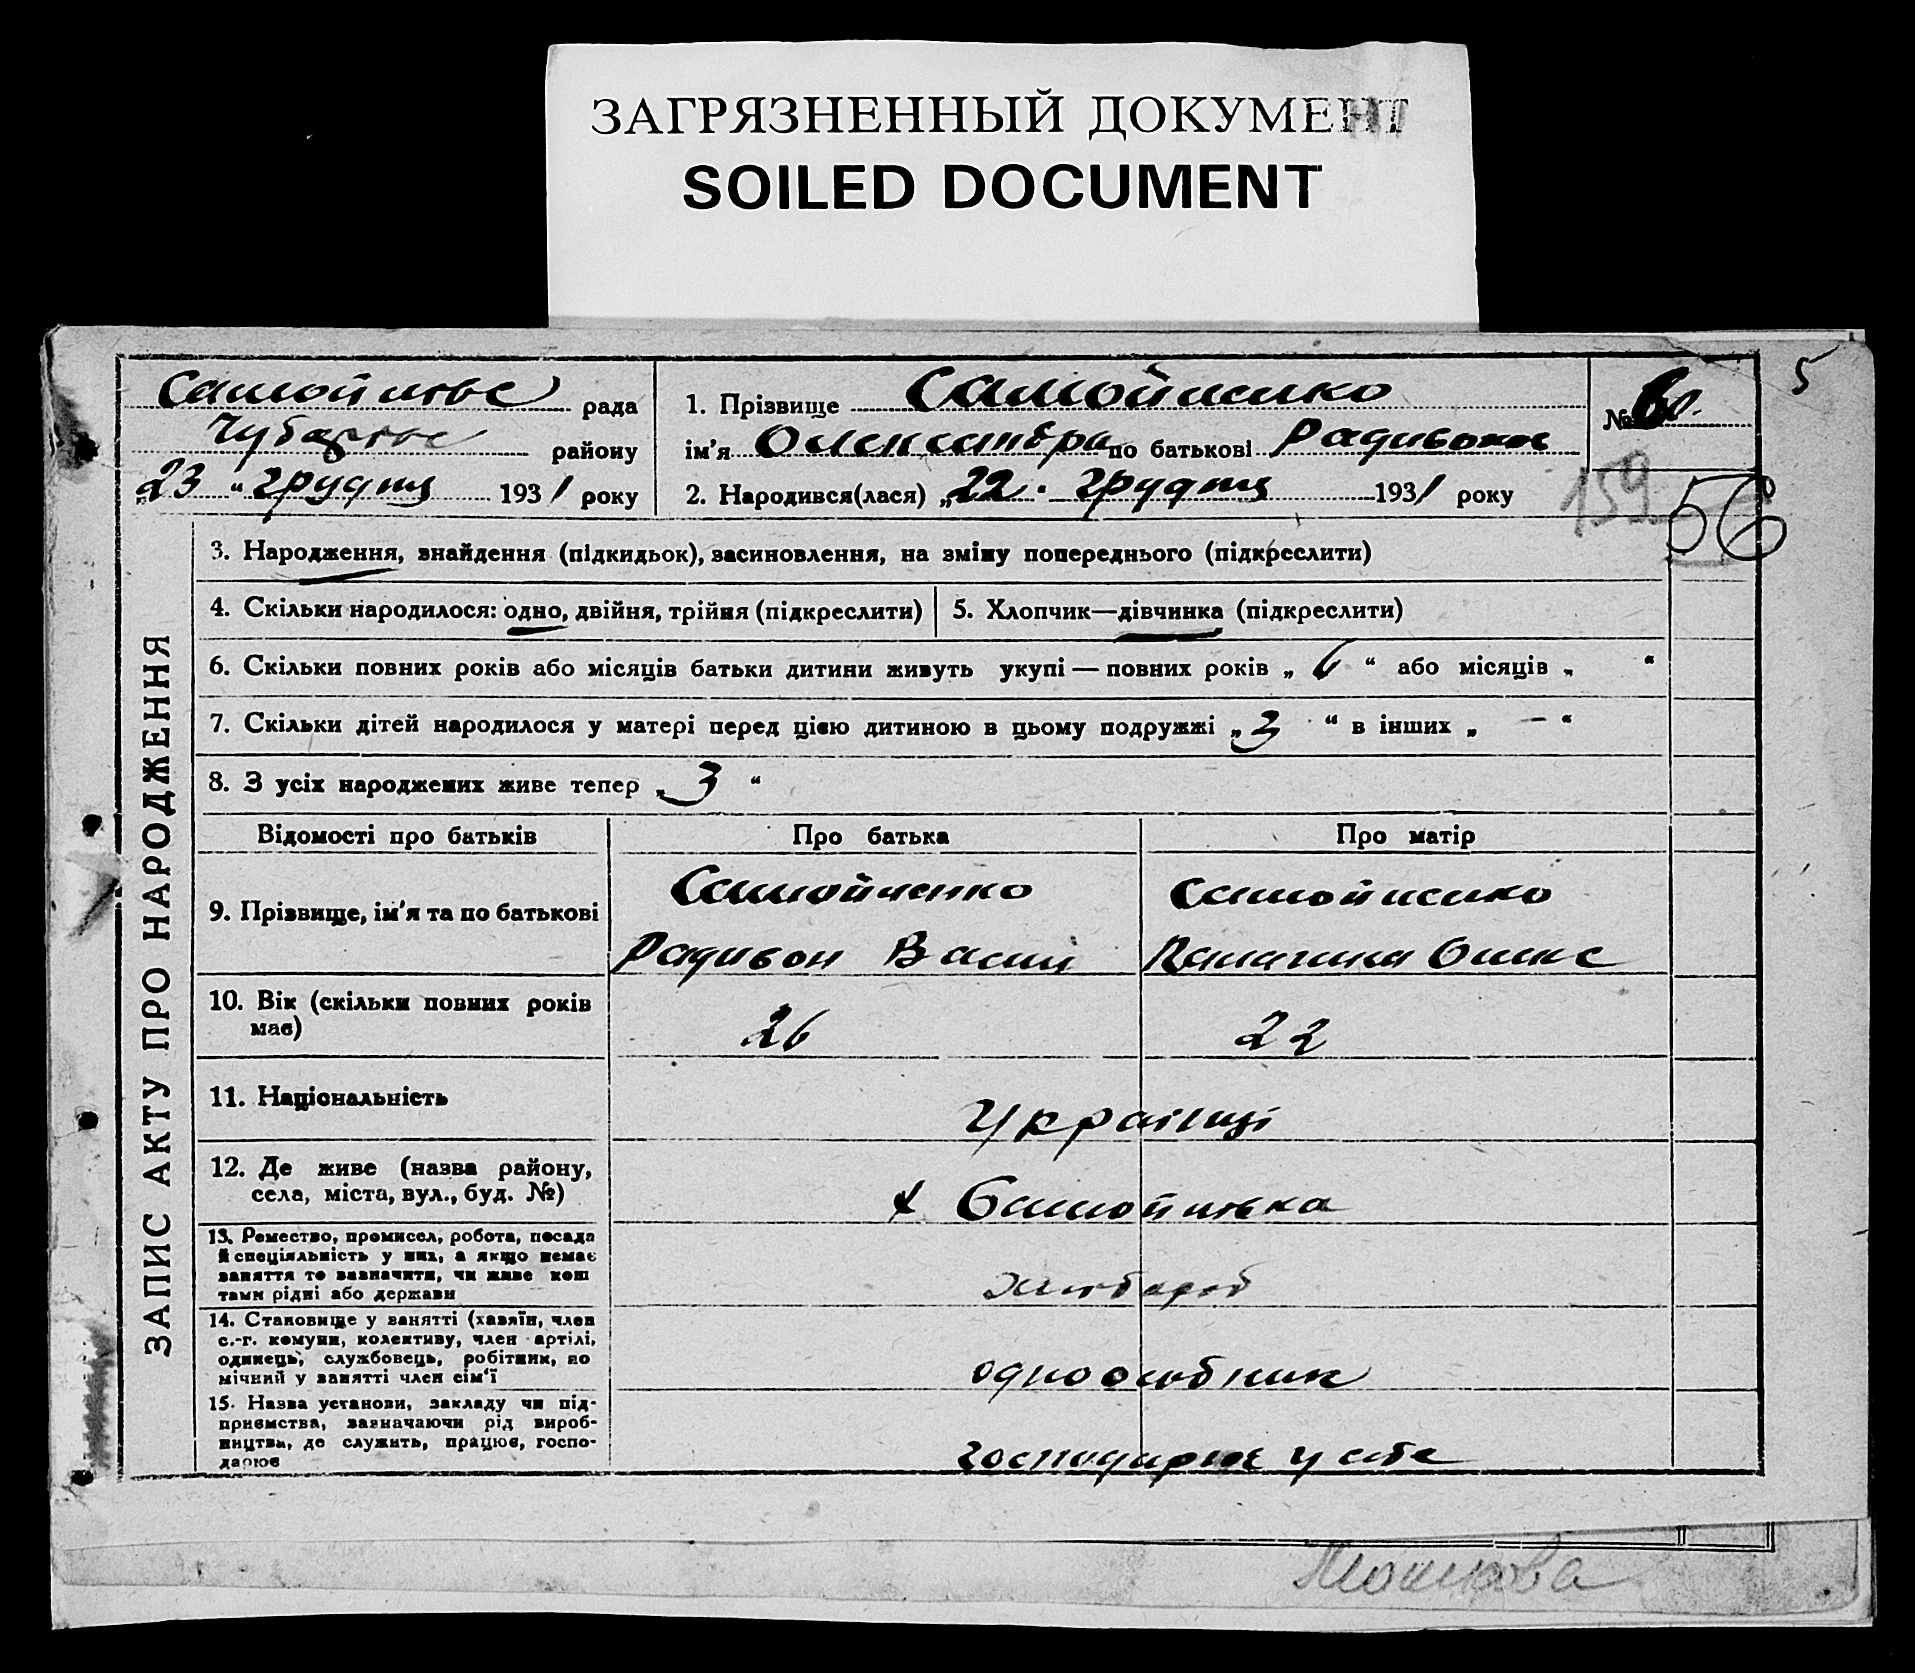 ЗАГРЯЗНЕННЫЙ ДОКУМЕНТ
SOILED DOCUMENT
5
рада
району
„23 “ грудня 1931 року
1. Прізвище Самойленко
№ 60.
ім'я Олександра по батькові Радивонов
2. Народився(лася) „22. грудня 1931 року
159
56
ЗАПИС АКТУ ПРО НАРОДЖЕННЯ
3. Народження, знайдення (підкидьок), засиновлення, на зміну попереднього (підкреслити)
4. Скільки народилося: одно, двійня, трійня (підкреслити)
5. Хлопчик—дівчинка (підкреслити)
6. Скільки повних років або місяців батьки дитини живуть укупі — повних років „ 6 “ або місяців „ “
7. Скільки дітей народилося у матері перед цією дитиною в цьому подружжі „ 3 “ в інших „ – “
8. З усіх народжених живе тепер „ 3 “
Відомості про батьків
Про батька
Про матір
9. Прізвище, ім'я та по батькові
Самойленко
Радивон Васил
Самойленко
10. Вік (скільки повних років
має)
26
22
11. Національність
Українці
12. Де живе (назва району,
села, міста, вул., буд. №)
13. Ремество, промисел, робота, посада
й спеціяльність у них, а якщо немає
заняття то зазначити, чи живе кош
тами рідні або держави
хлібороб
14. Становище у занятті (хазяїн, член
с.-г. комуни, колективу, член артілі,
одинець, службовець, робітник, по
мічний у занятті член сім'ї
одноосібник
15. Назва установи, закладу чи під-
приємства, зазначаючи рід вироб-
ництва, де служить, працює, госпо-
дарює
господарює у себе